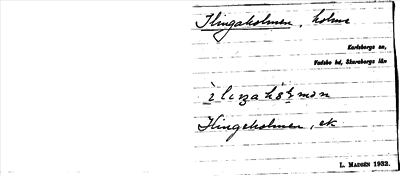 Klingaholmen, holme
Karlsborgs sn,
Vadsbo hd, Skaraborgs län
Klingeholmen, ek
L. MADSÉN 1932.